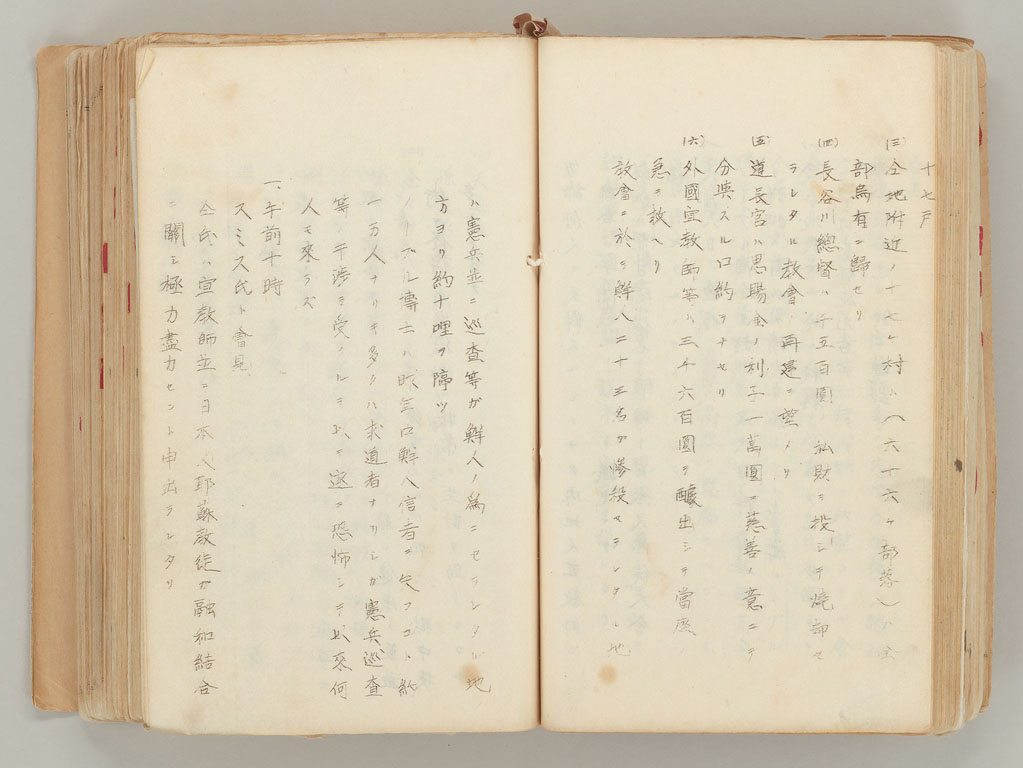 十七戸
(三)仝地附近ノ十七ヶ村(六十六ヶ部落)ハ全
部烏有ニ歸セリ
(四)長谷川總督ハ千五百圓ノ私財ヲ投シテ燒却セ
ラレタル教會ノ再建ニ望メリ
(五)道長官ハ恩賜金ノ利子一萬圓ヲ慈善ノ意ニテ
分與スル口約ヲナセリ
(六)外國宣教師等ハ三千六百圓ヲ醵出シテ當座ノ
急ニ救ヘリ
教會ニ於テ鮮人二十三名カ慘殺セラレタル地
ハ憲兵並ニ巡査等ガ鮮人ノ爲ニセラレタル地
方ヨリ約十哩ヲ隔ツ
ノーブル博士ハ昨年口鮮人信者ヲ失フコト約
一万人ナリキ多クハ求道者ナリシガ憲兵巡査
等ノ干渉ヲ受クルヲ以テ遂ニ恐怖シテ以來何
人モ來ラズ
一、午前十時
スミス氏ト會見
仝氏ハ宣教師並ニ日本人耶蘇教徒カ融和結合
ニ關シ極力盡力セント申出ラレタリ